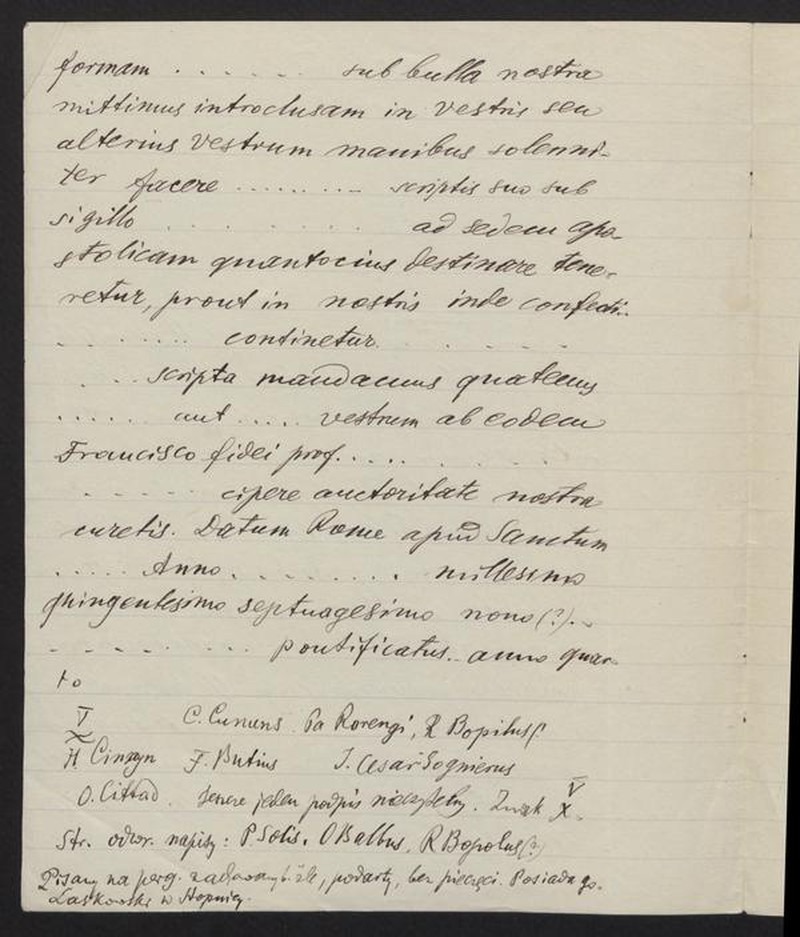 formam . . . . . . sub bulla nostra
mittimus introclusam in vestris seu
alterius vestrum manibus solenni-
ter facere . . . . . . . . . scriptis suo sub
sigillo . . . . . . . . . ad sedem apo-
stolicam quantocius destinare tene-
retur, prout in nostris inde confecti..
. . . . . . . . continetur. . . . .
. . . . scripta mandamus quatenus
. . . . . aut . . . . . vestrum ab eodem
Francisco fidei prof. . . . . . . .
. . . . . . cipere auctoritate nostra
curetis. Datum Rome apud Sanctum
. . . . . Anno . . . . . . . . . millesimo
quingentesimo septuagesimo nono (?). .
. . . . . . . . . pontificatus . . anno quar-
to
V C. Cunens. Pa Rorengi, R Bopilus(?
X
H. Cinzyn F. Butius J. Cesar Sognierus
O. Cittad. jeden podpis nieczytelny. Znak V X.
Str. odwr. napisy: P. Solis. O Balbus, R Bopolus(?)
Pisany na perg. źle, podarty, bez pieczęci. Posiada go.
Laskowski w Stopnicy.